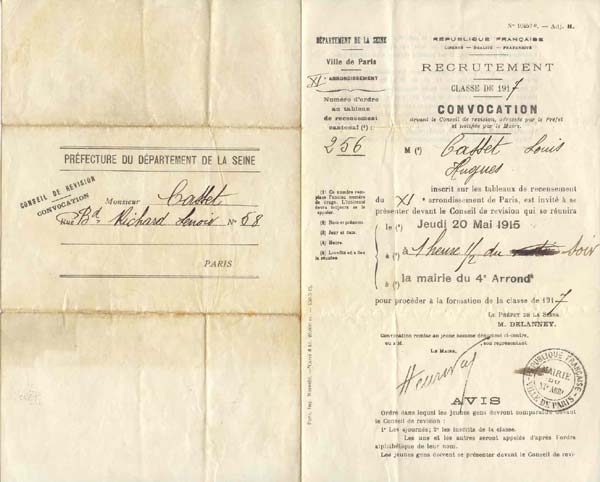 PRÉFECTURE DU DÉPARTEMENT DE LA SEINE
CONSEIL DE REVISION
CONVOCATION
Monsieur Casset
Rue Bd Richard Lenoir No 58
PARIS
DÉPARTEMENT DE LA SEINE
Ville de Paris
XIe ARRONDISSEMENT
Numéro d'ordre
au tableau
de recensement
cantonal (1) :
256
(1) Ce numéro rem-
place l'ancien numéro
de tirage. L'intéressé
devra toujours se le
rappeler.
(2) Nom et prénoms.
(3) Jour et date.
(4) Heure.
(5) Localité où a lieu
la réunion
RÉPUBLIQUE FRANÇAISE
LIBERTÉ — ÉGALITÉ — FRATERNITÉ
RECRUTEMENT
CLASSE DE 1917
CONVOCATION
devant le Conseil de revision, adressée par le Préfet
et notifiée par le Maire.
M (2) Casset Louis
Hugues
inscrit sur les tableaux de recensement
du XIe arrondissement de Paris, est invité à se
présenter devant le Conseil de revision qui se réunira
le (3) Jeudi 20 Mai 1915
à (4) 1 heure 1/2 du soir
à (5) la mairie du 4e Arrondt
pour procéder à la formation de la classe de 1917
LE PRÉFET DE LA SEINE
M. DELANNEY.
Convocation remise au jeune homme dénommé ci-contre,
ou à M. , son représentant
LE MAIRE,
RÉPUBLIQUE FRANÇAISE
MAIRIE
DU
XIe ARRt
VILLE DE PARIS
AVIS
Ordre dans lequel les jeunes gens devront comparaître devant
le Conseil de revision :
1° Les ajournés; 2° les inscrits de la classe.
Les uns et les autres seront appelés d'après l'ordre
alphabétique de leur nom.
Les jeunes gens doivent se présenter devant le Conseil de revi-